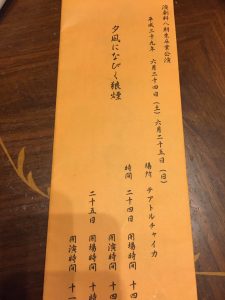 演劇科八期生卒業公演
平成二十九年 六月二十四日(土)六月二十五日(日)
場所 テアトルチャイカ
夕凪になびく狼煙
時間 二十四日 開場時間 十四
開演時間 十四
二十五日 開場時間 十時
開演時間 十一